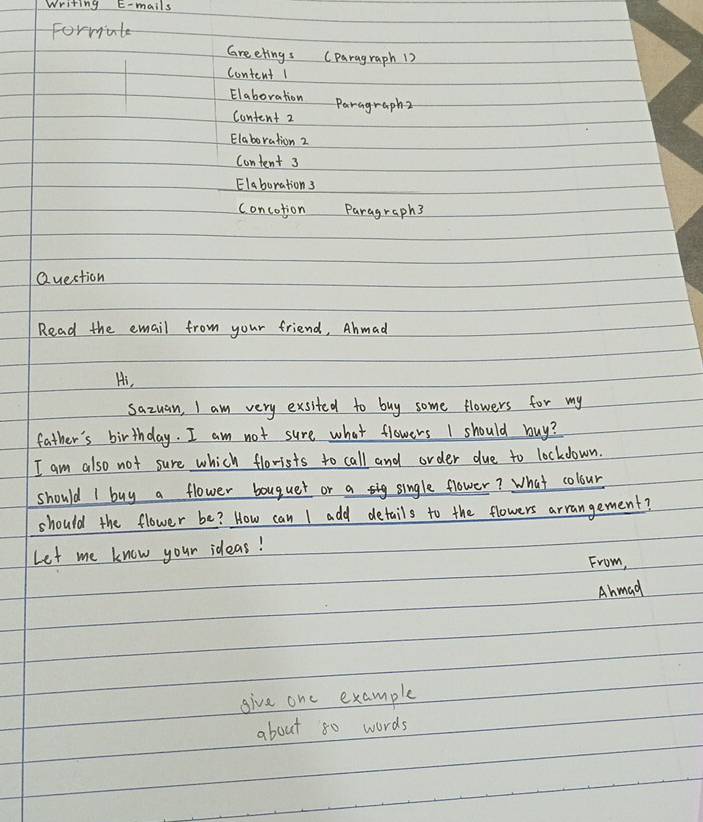 Writing E-mails
Formule
Greetings (Paragraph 1)
Content 1
Elaboration Paragraph 2
Content 2
Elaboration 2
Content 3
Elaboration 3
Concotion Paragraph 3
Question
Read the email from your friend, Ahmad
Hi,
Sazuan, I am very exsited to buy some flowers for my
father's birthday. I am not sure what flowers I should buy?
I am also not sure which florists to call and order due to lockdown.
should I buy a flower bouquet or a sig single flower? What colour
should the flower be? How can I add details to the flowers arrangement?
Let me know your ideas!
From,
Ahmad
give one example
about 80 words